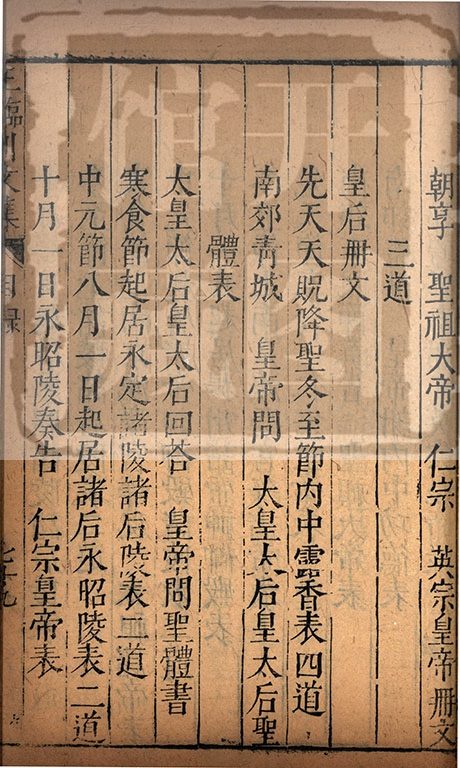 朝享　聖祖大帝　仁宗　英宗皇帝冊文
三道
皇后冊文
先天天貺降聖冬至節内中露香表四道
南郊靑城　皇帝問　太皇太后皇太后聖
體表
太皇太后皇太后回荅　皇帝問聖體書
寒食節起居永定諸陵諸后陵表二道
中元節八月一日起居諸后永昭陵表二道
十月一日永昭陵奏告　仁宗皇帝表
王臨川文集　目録